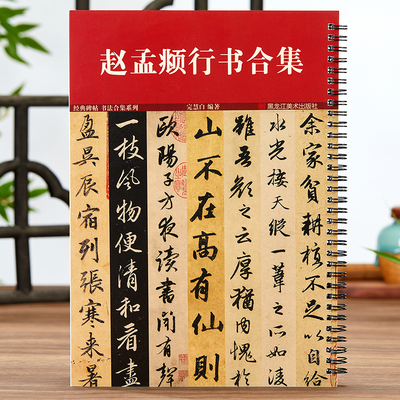 赵孟𫖯行书合集
经典碑帖 书法合集系列
编著
黑龙江美术出版社
余家貧耕植不足以自給
水光接天縱一葦之所如凌
雖吾顏之云厚猶内愧於
山不在高有仙則
歐陽子方夜讀書聞有聲
一枝風物便清和看盡
盈昃辰宿列張寒来暑